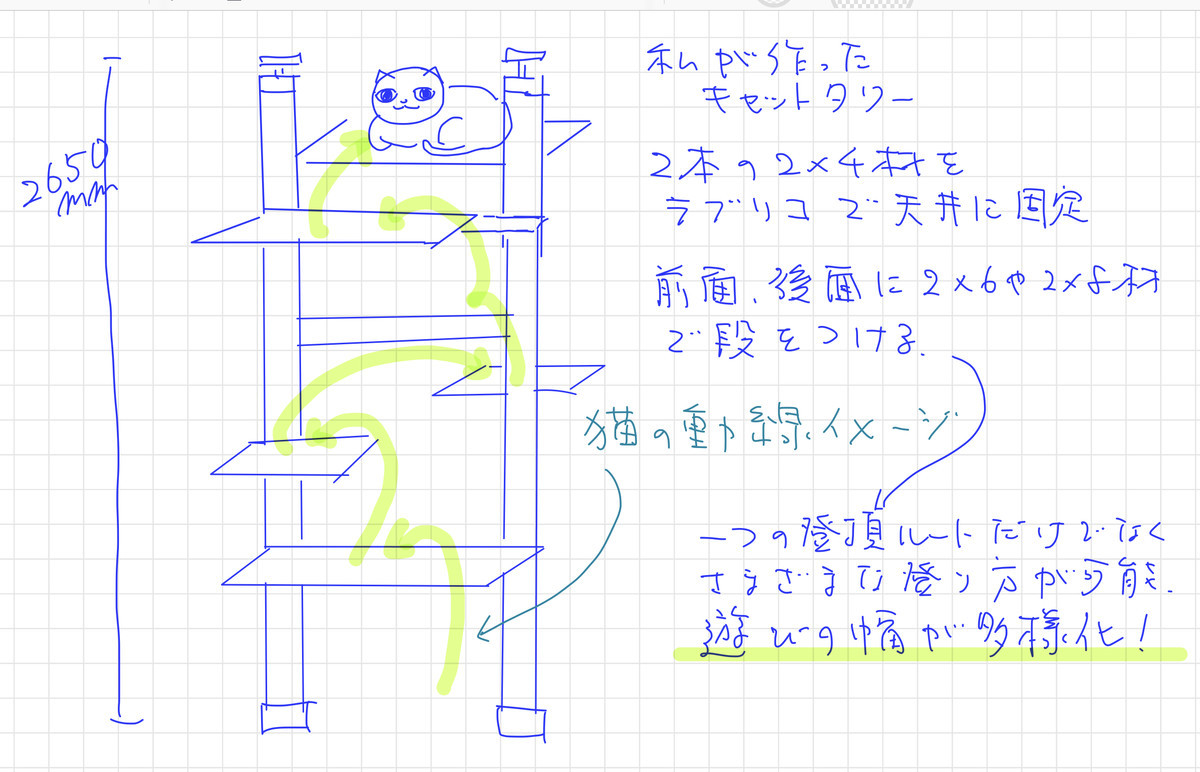 2650
mm
私が作った
キャットタワー
2本の2×4材を
ラブリコで天井に固定
前面、後面に2×6や2×8材
で段をつける.
猫の動線イメージ
一つの登頂ルートだけでなく
さまざまな登り方が可能.
遊びの幅が多様化!